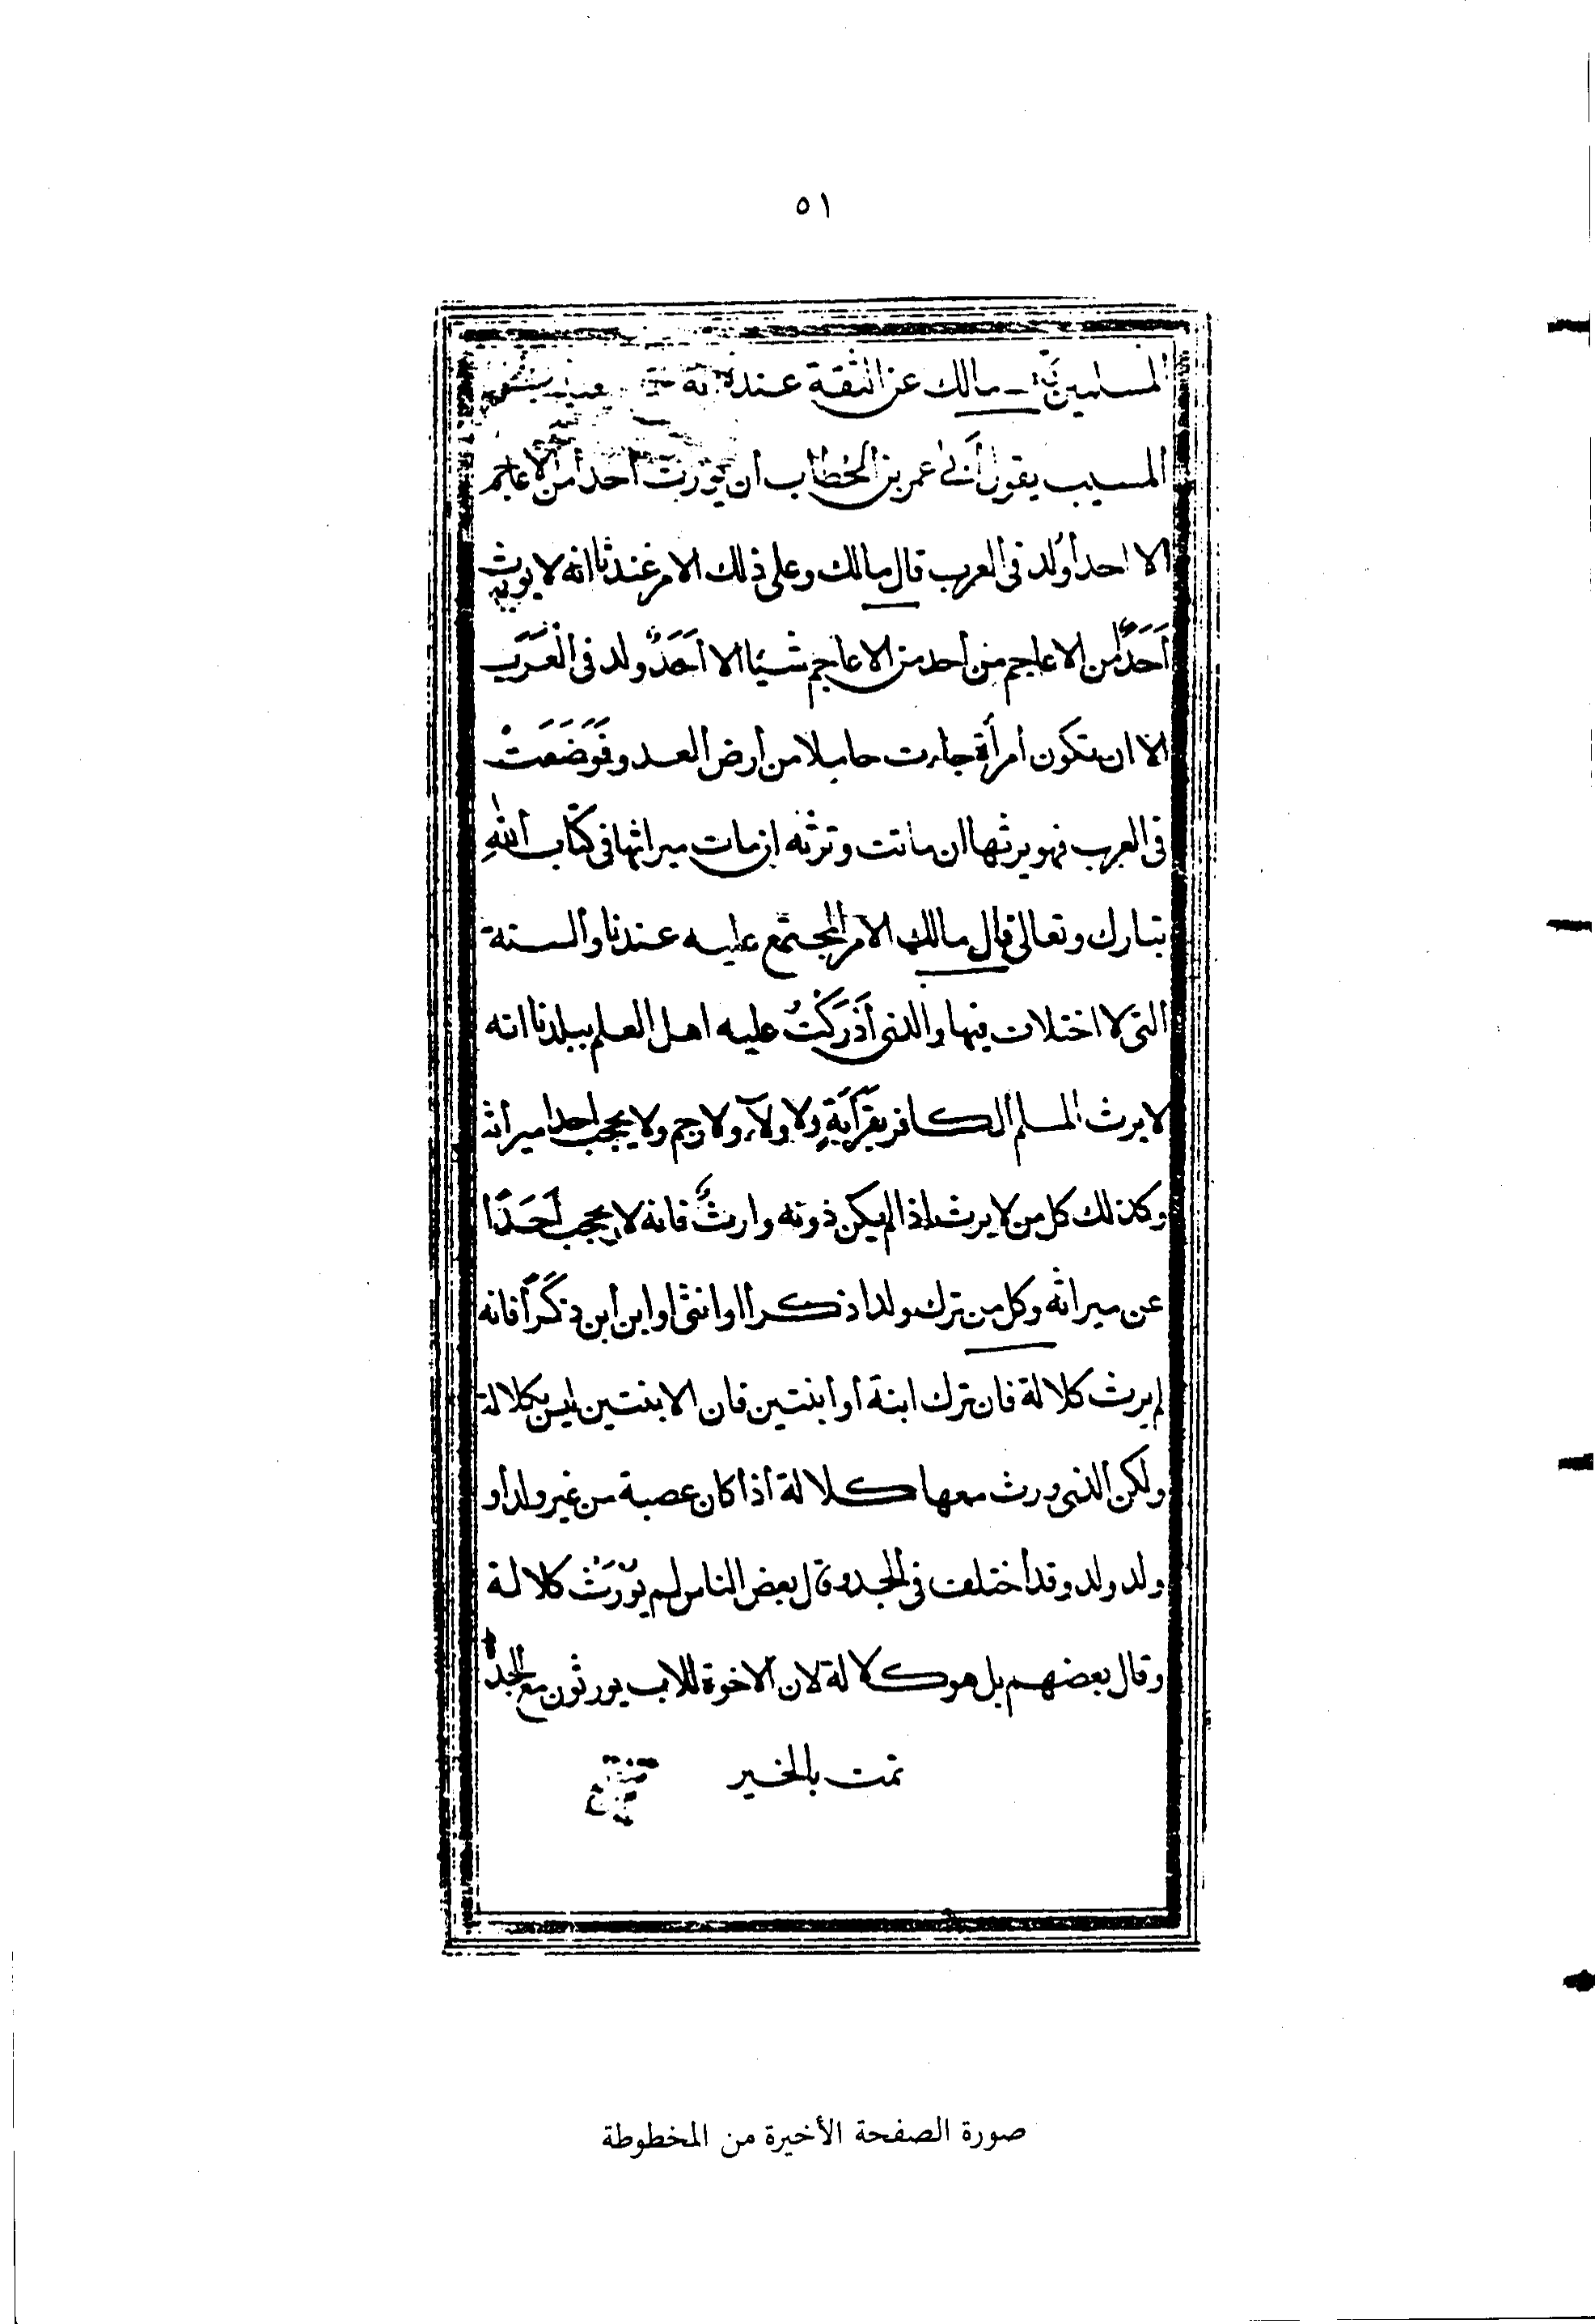 ٥١
المسلمين مالك عن الثقة عنده انه
المسيب يقول أبى عمر بن الخطاب أن يورث أحدا من الاعاجم
الا احدا ولد فى العرب قال مالك وعلى ذلك الامر عندنا انه لا يورث
أَحَدًا من الاعاجم من أحد من الاعاجم شيئا الا أَحَدٌ ولد فى الْعَرَب
الا ان تكون امرأة جاءت حاملا من أرض العدو فَوَضَعَتْ
فى العرب فهو يرثها ان ماتت وترثه إن مات ميراثها فى كتاب الله
تبارك وتعالى قال مالك الامر المجتمع عليه عندنا والسنة
التى لا اختلاف فيها والذى أَدْرَكْتُ عليه اهل العلم ببلدنا انه
لا يرث المسلم الكافر بقَرَابَةٍ ولا ولآء ولا رحم ولا يحجب احدا ميراثه
وكذلك كل من لا يرث اذا لم يكن دونه وارثٌ فانه لا يحجب أَحَدًا
عن ميراثه وكل من ترك ولدا ذكرا او انثى او ابن أبن ذكَرًا فانه
لم يرث كلالة فان ترك ابنة أو أبنتين فان الابنتين ليس بكلالة
ولكن الذى ورث معها كلالة أذا كان عصبة من غير ولد أو
ولد ولد وقد أختلف فى الجد وقال بعض الناس لم يُوَرَثْ كلالة
وقال بعضهم بل هو كلالة لان الاخوة للاب يورثون مع الجد
تمت بالخير
صورة الصفحة الأخيرة من المخطوطة